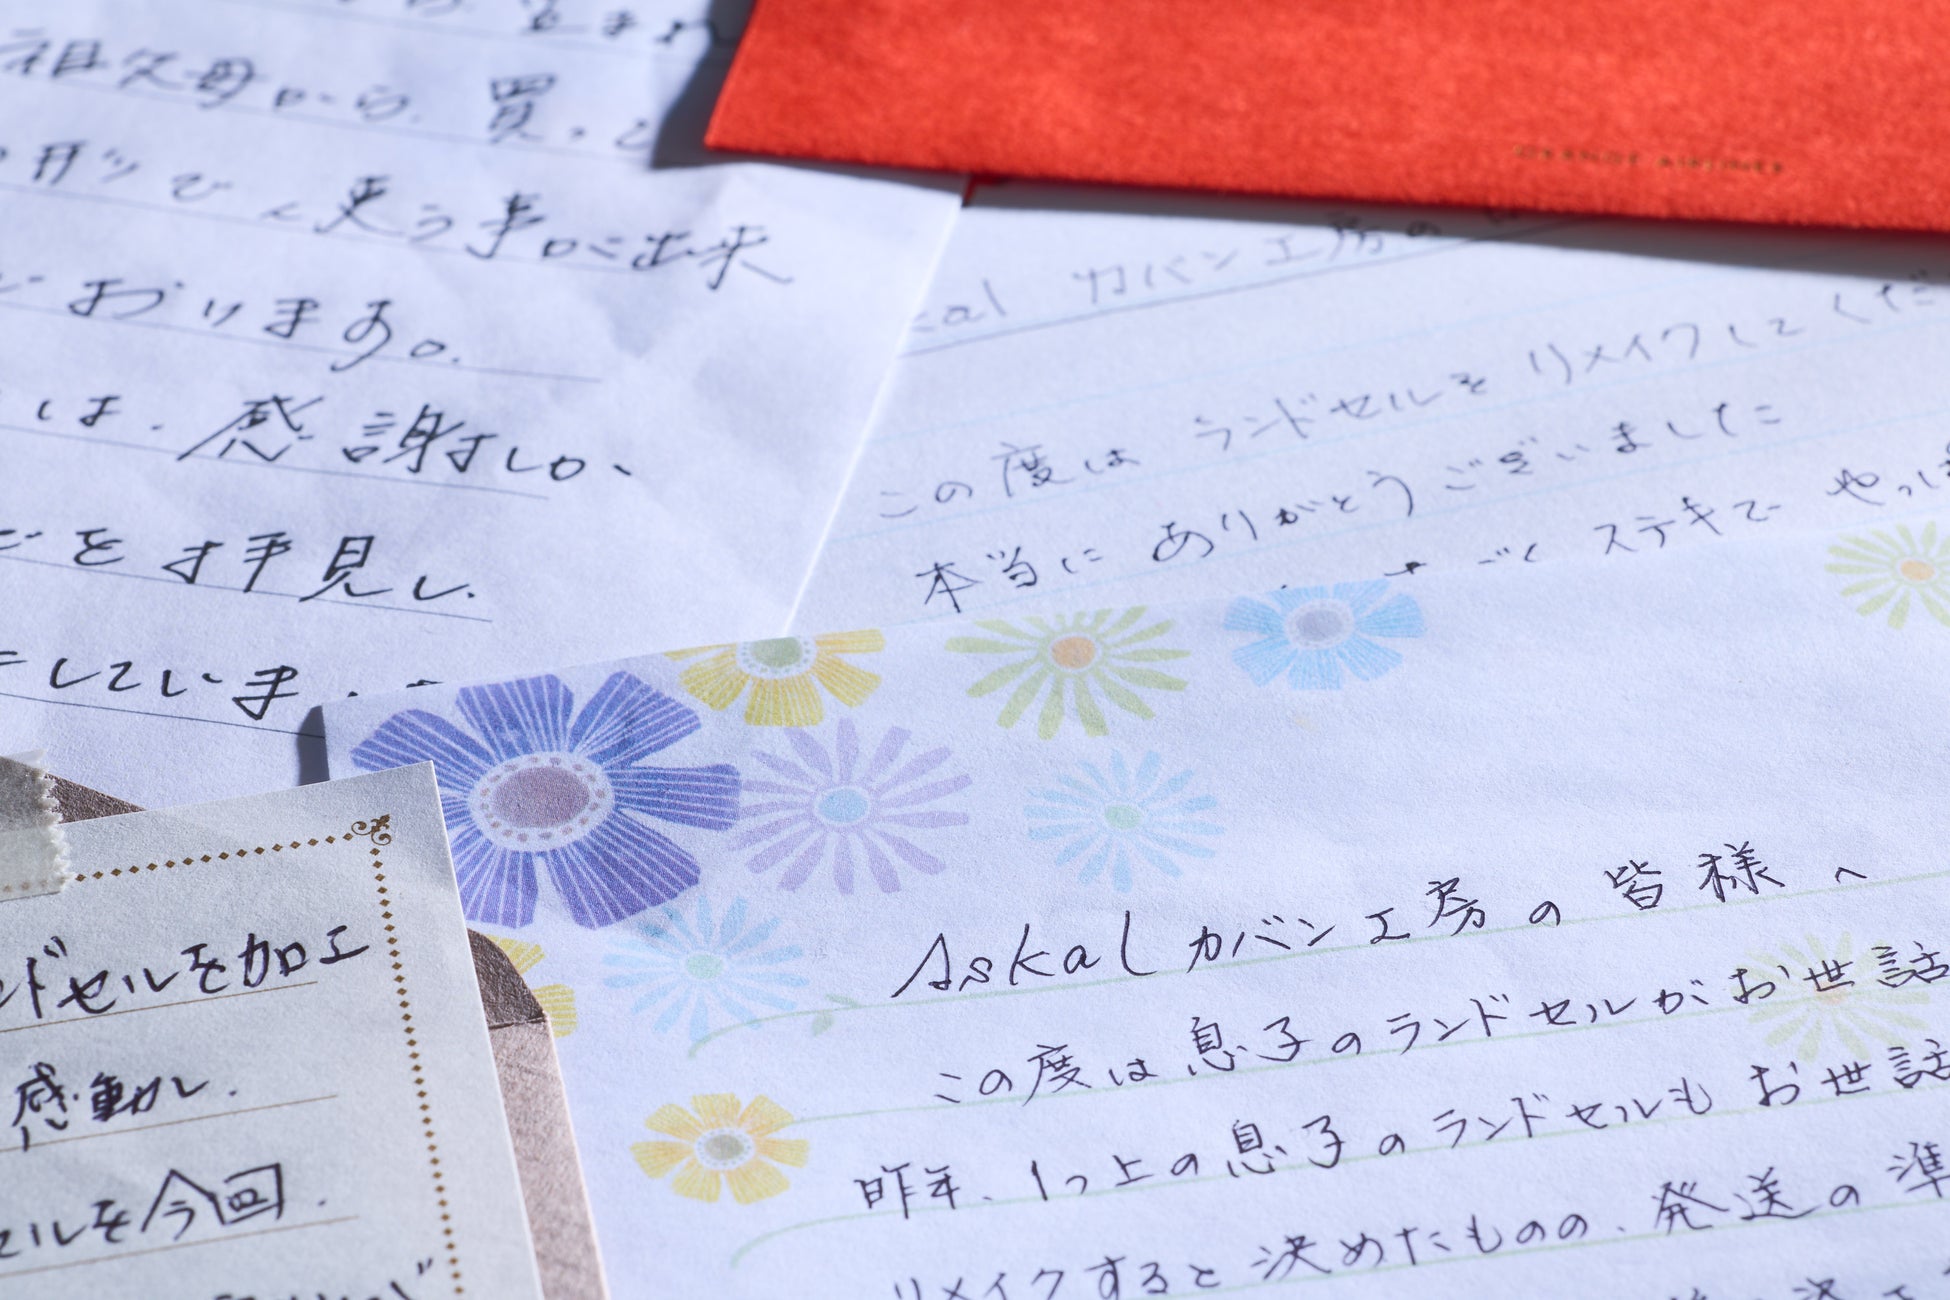 祖父母から、買って
使う事が出来
おります。
は、感謝しか、
を拝見し、
していま
カバン工房の
この度は ランドセルを リメイクして くだ
本当に ありがとうございました
ステキで やっぱ
Askal カバン工房の皆様へ
この度は息子のランドセルがお世話
昨年、1つ上の息子のランドセルもお世話
リメイクすると決めたものの、発送の準
ンドセルを加工
感動し、
セルを今回、